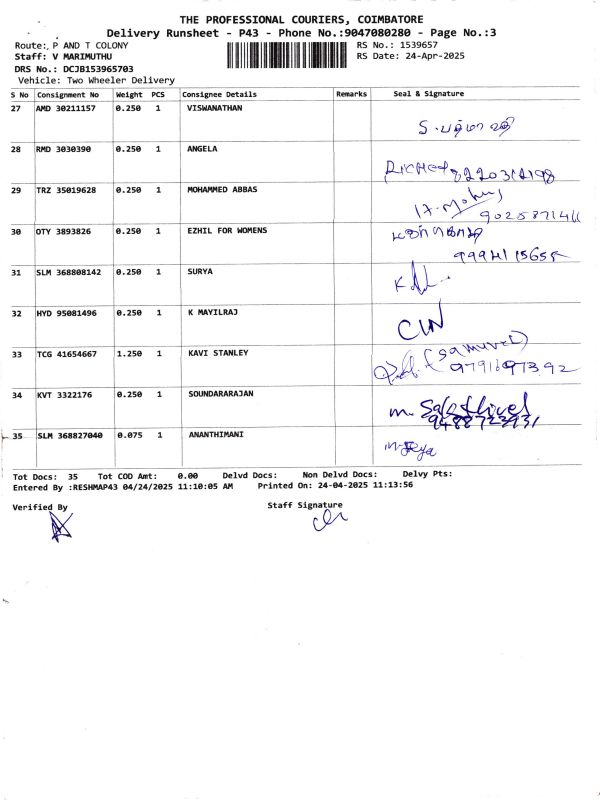 THE PROFESSIONAL COURIERS, COIMBATORE
Delivery Runsheet - P43 - Phone No.:9047080280 - Page No.:3
Route: P AND T COLONY
RS No.: 1539657
Staff: V MARIMUTHU
RS Date: 24-Apr-2025
DRS No.: DCJB153965703
Vehicle: Two Wheeler Delivery
S No Consignment No Weight PCS Consignee Details Remarks Seal & Signature
27 AMD 30211157 0.250 1 VISWANATHAN
S. பத்மாவதி
28 RMD 3030390 0.250 1 ANGELA
29 TRZ 35019628 0.250 1 MOHAMMED ABBAS
30 OTY 3893826 0.250 1 EZHIL FOR WOMENS
31 SLM 368808142 0.250 1 SURYA
32 HYD 95081496 0.250 1 K MAYILRAJ
33 TCG 41654667 1.250 1 KAVI STANLEY
(Samuvel)
9791697392
34 KVT 3322176 0.250 1 SOUNDARARAJAN
9488723931
35 SLM 368827040 0.075 1 ANANTHIMANI
Tot Docs: 35 Tot COD Amt: 0.00 Delvd Docs: Non Delvd Docs: Delvy Pts:
Entered By :RESHMAP43 04/24/2025 11:10:05 AM Printed On: 24-04-2025 11:13:56
Verified By
Staff Signature